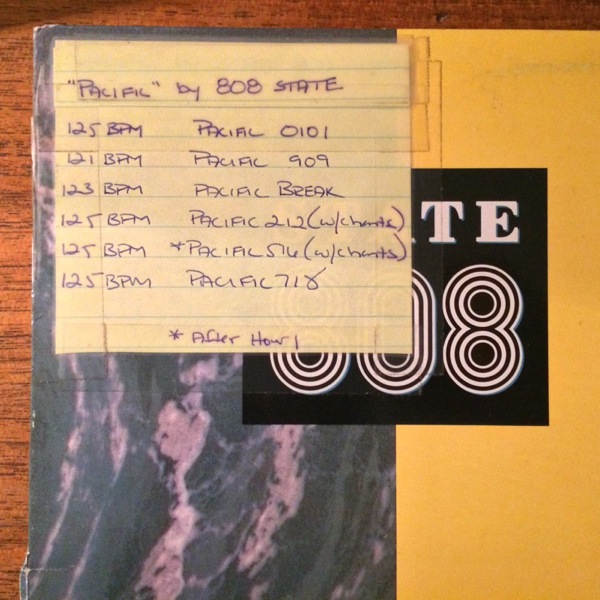 "PACIFIC" by 808 STATE
125 BPM PACIFIC 0101
121 BPM PACIFIC 909
123 BPM PACIFIC BREAK
125 BPM PACIFIC 212 (w/chants)
125 BPM *PACIFIC 516 (w/chants)
125 BPM PACIFIC 718
* After Hour!
ATE
808